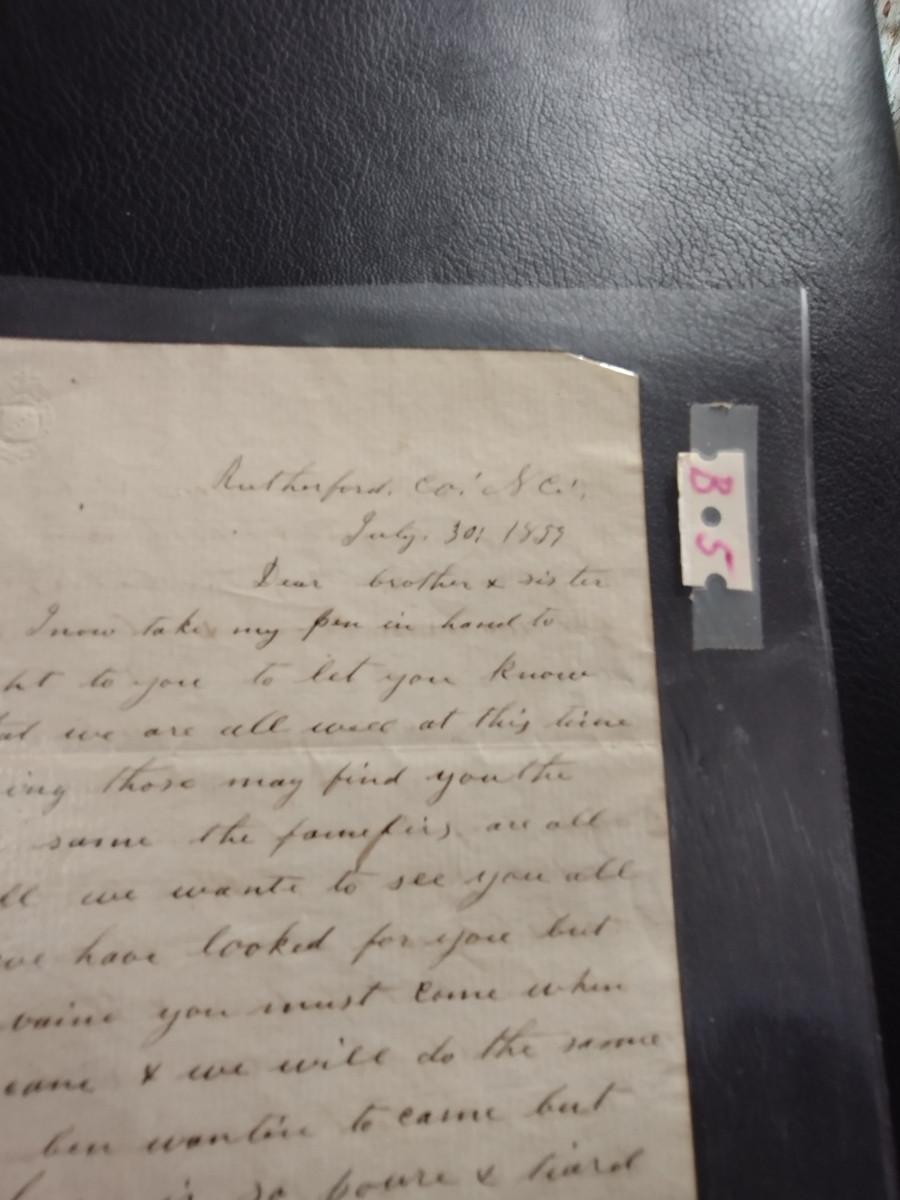 Rutherford. Co.' N C.',
July. 30: 1859
Dear brother & sister
I now take my pen in hand to
ht to you to let you know
at we are all well at this time
ing those may find you the
same the famefirs are all
ll we wante to see you all
we have looked for you but
vaine you must come when
cane & we will do the samme
ben wantin to came but
is so poure & hard
B.5